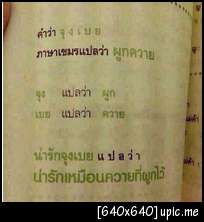 คำว่า จุงเบย
ภาษาเขมรแปลว่า ผูกควาย
จุง แปลว่า ผูก
เบย แปลว่า ควาย
น่ารักจุงเบย แปลว่า
น่ารักเหมือนควายที่ผูกไว้
[640x640] upic.me